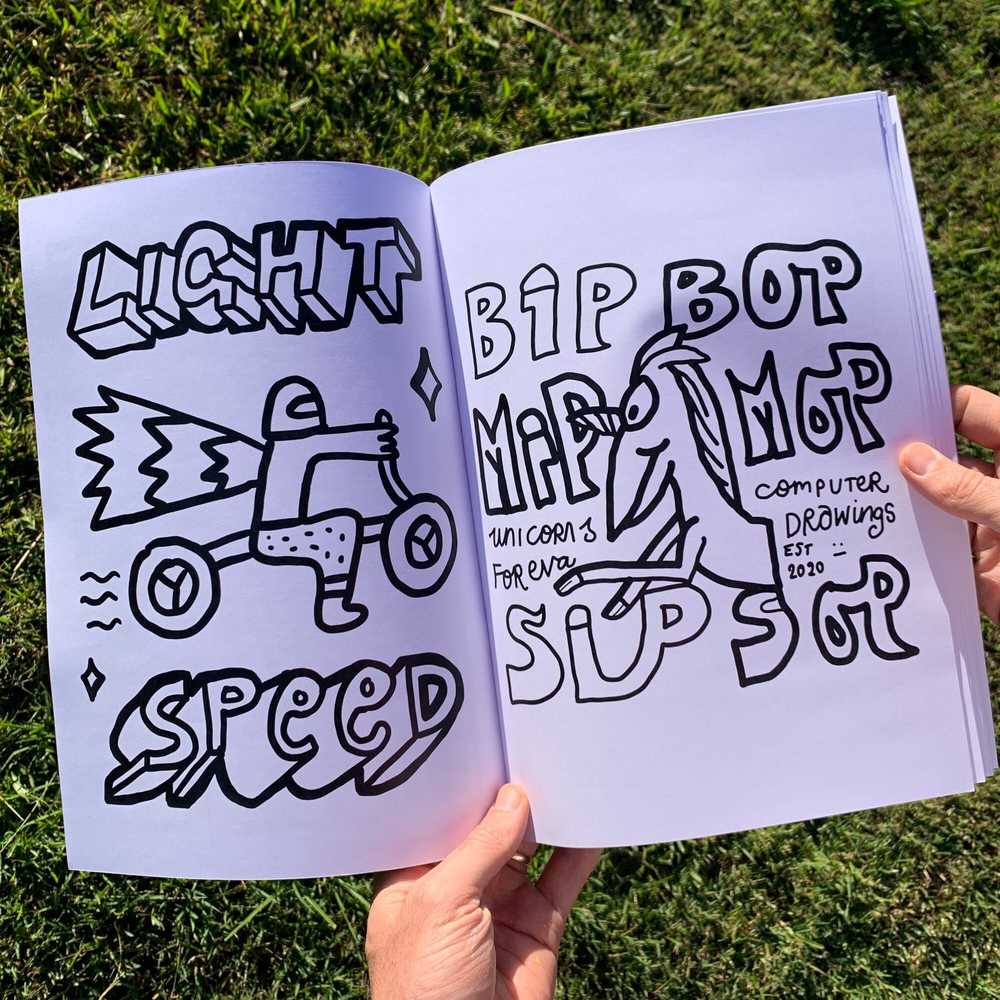 LIGHT
SPEED
BIP BOP
MIP MOP
UNICORNS
FOR EVA
COMPUTER
DRAWINGS
EST
2020
SIP SOP